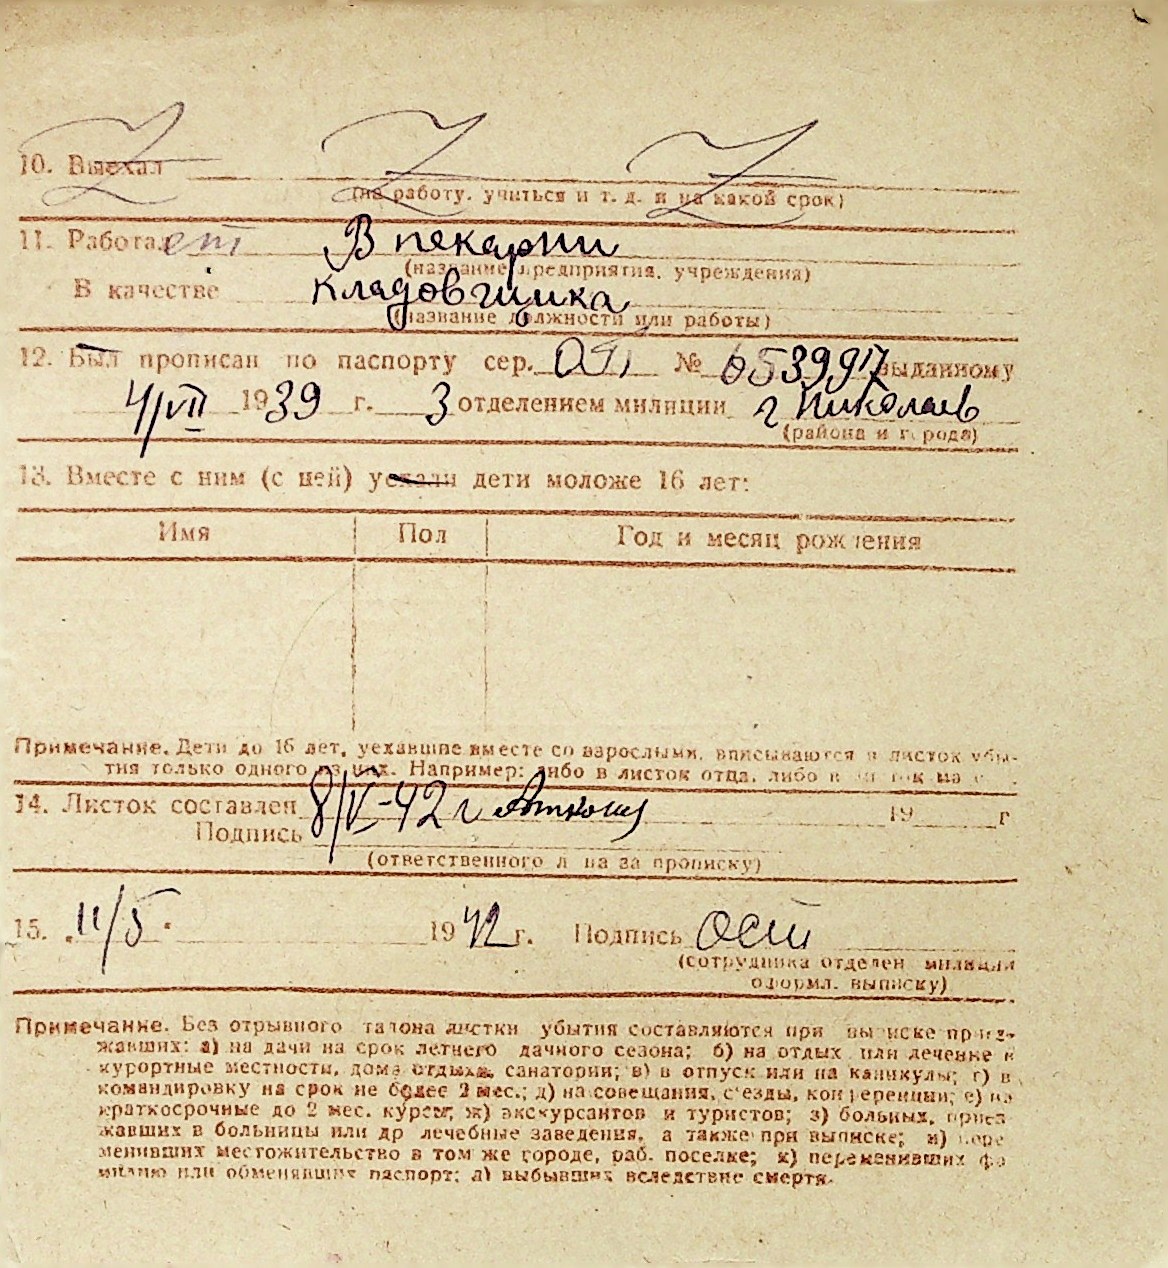 10. Выехал Z Z Z
(на работу, учиться и т. д. и на какой срок)
11. Работает В пекарни
(название предприятия, учреждения)
В качестве кладовщика
(название должности или работы)
12. Был прописан по паспорту сер. № 653991 выданному
4/VII 1939 г. 3 отделением милиции г Николаев
(района и города)
13. Вместе с ним (с ней) уехали дети моложе 16 лет:
Имя Пол Год и месяц рождения
Примечание. Дети до 16 лет, уехавшие вместе со взрослыми, вписываются в листок убы-
тия только одного из них. Например: либо в листок отца, либо в
14. Листок составлен 8/V-42 г 19 г
Подпись
(ответственного лица за прописку)
15. 11/5 1942 г. Подпись
(сотрудника отделен милиции
оформл. выписку)
Примечание. Без отрывного талона листки убытия составляются при выписке приез-
жавших: а) на дачи на срок летнего дачного сезона; б) на отдых или лечение в
курортные местности, дома отдыха, санатории; в) в отпуск или на каникулы; г) в
командировку на срок не более 2 мес.; д) на совещания, съезды, конференции; е) на
краткосрочные до 2 мес. курсы; ж) экскурсантов и туристов; з) больных, приез-
жавших в больницы или др лечебные заведения, а также при выписке; и) пере
менивших местожительство в том же городе, раб. поселке; к) переменивших фа
милию или обменявших паспорт; л) выбывших вследствие смерти.